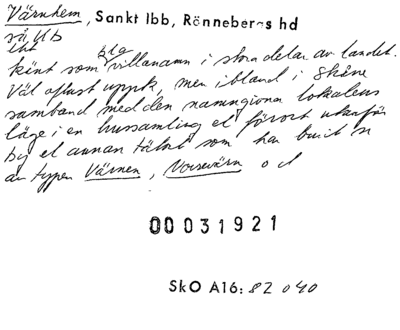 Värnhem, Sankt Ibb, Rönnebergs hd
så Ub
känt som bla villanamn i stora delar av landet.
Väl oftast uppk, men ibland i Skåne
samband med den namngivna lokalens
läge i en hussamling el förort utanför
by el annan tätort som har burit n
av typen Värnen, o d
00031921
SkO A16: 82 040